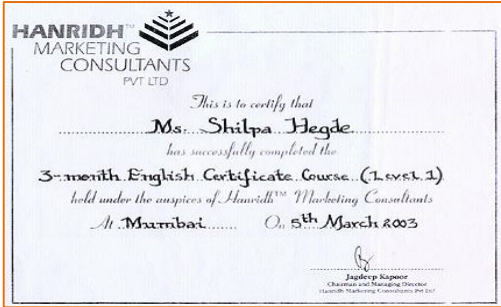 HANRIDH™
MARKETING
CONSULTANTS
PVT LTD
This is to certify that
Ms. Shilpa Hegde
has successfully completed the
3-month English Certificate Course (Level 1)
held under the auspices of Hanridh™ Marketing Consultants
At Mumbai On 5th March 2003
Jagdeep Kapoor
Chairman and Managing Director
Hanridh Marketing Consultants Pvt Ltd